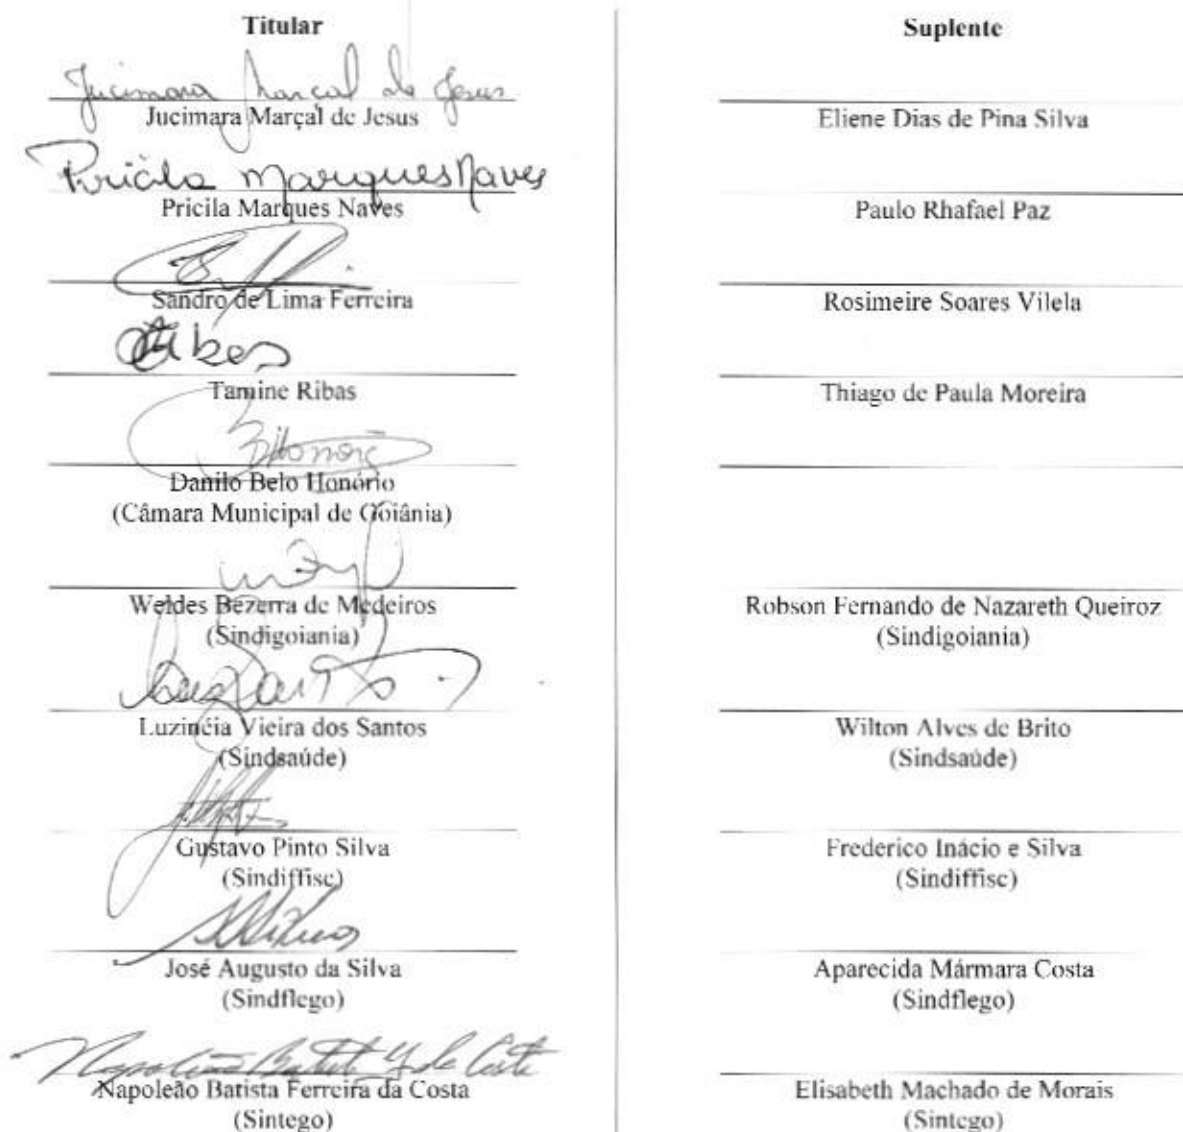 Titular
Jucimara Marçal de Jesus
Jucimara Marçal de Jesus
Pricila Marques Naves
Pricila Marques Naves
Sandro de Lima Ferreira
Tamine Ribas
Danilo Belo Honório
(Câmara Municipal de Goiânia)
Weldes Bezerra de Medeiros
(Sindigoiania)
Luzinéia Vieira dos Santos
(Sindsaúde)
Gustavo Pinto Silva
(Sindiffisc)
José Augusto da Silva
(Sindflego)
Napoleão Batista Ferreira da Costa
(Sintego)
Suplente
Eliene Dias de Pina Silva
Paulo Rhafael Paz
Rosimeire Soares Vilela
Thiago de Paula Moreira
Robson Fernando de Nazareth Queiroz
(Sindigoiania)
Wilton Alves de Brito
(Sindsaúde)
Frederico Inácio e Silva
(Sindiffisc)
Aparecida Mármara Costa
(Sindflego)
Elisabeth Machado de Morais
(Sintego)